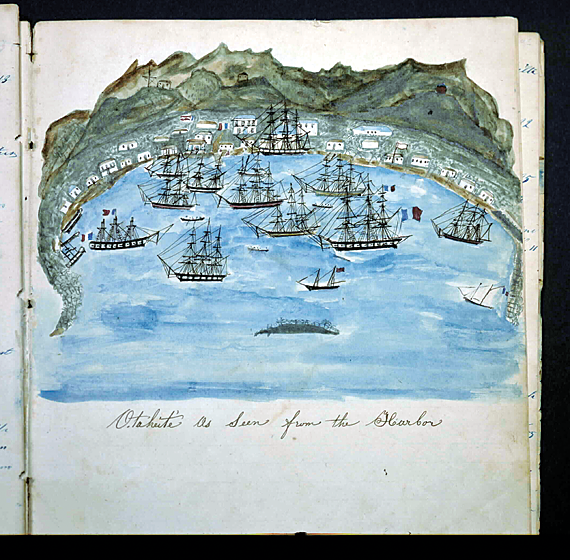 Otaheité as Seen from the Harbor